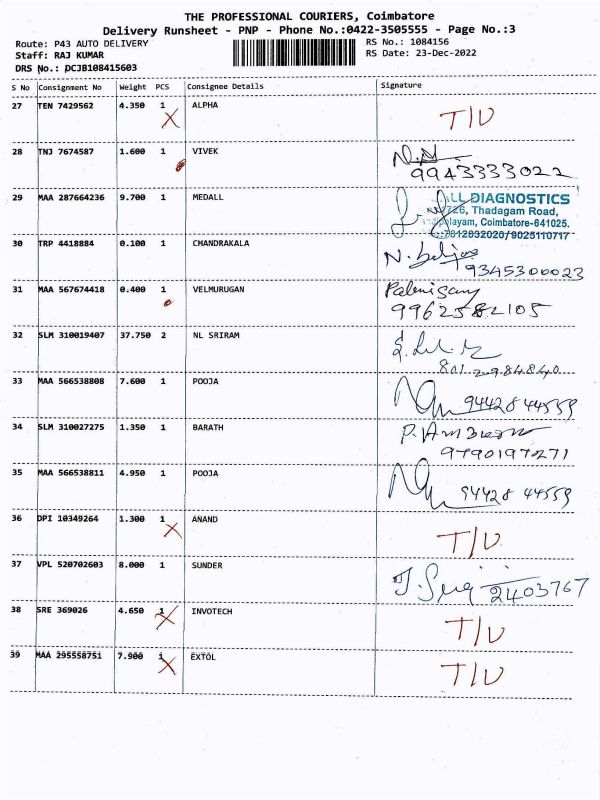 THE PROFESSIONAL COURIERS, Coimbatore
Delivery Runsheet - PNP - Phone No.:0422-3505555 - Page No.:3
Route: P43 AUTO DELIVERY RS No.: 1084156
Staff: RAJ KUMAR RS Date: 23-Dec-2022
DRS No.: DCJB108415603
S No Consignment No Weight PCS Consignee Details Signature
27 TEN 7429562 4.350 1 ALPHA T/U
28 TNJ 7674587 1.600 1 VIVEK
9943333022
29 MAA 287664236 9.700 1 MEDALL
DIAGNOSTICS
Thadagam Road,
Coimbatore-641025.
30 TRP 4418884 0.100 1 CHANDRAKALA
9345300023
31 MAA 567674418 0.400 1 VELMURUGAN
32 SLM 310019407 37.750 2 NL SRIRAM
33 MAA 566538808 7.600 1 POOJA
94428 44559
34 SLM 310027275 1.350 1 BARATH
35 MAA 566538811 4.950 1 POOJA
94428 44559
36 DPI 10349264 1.300 1 ANAND T/U
37 VPL 520702603 8.000 1 SUNDER
2403767
38 SRE 369026 4.650 1 INVOTECH T/U
39 MAA 295558751 7.900 1 EXTOL T/U